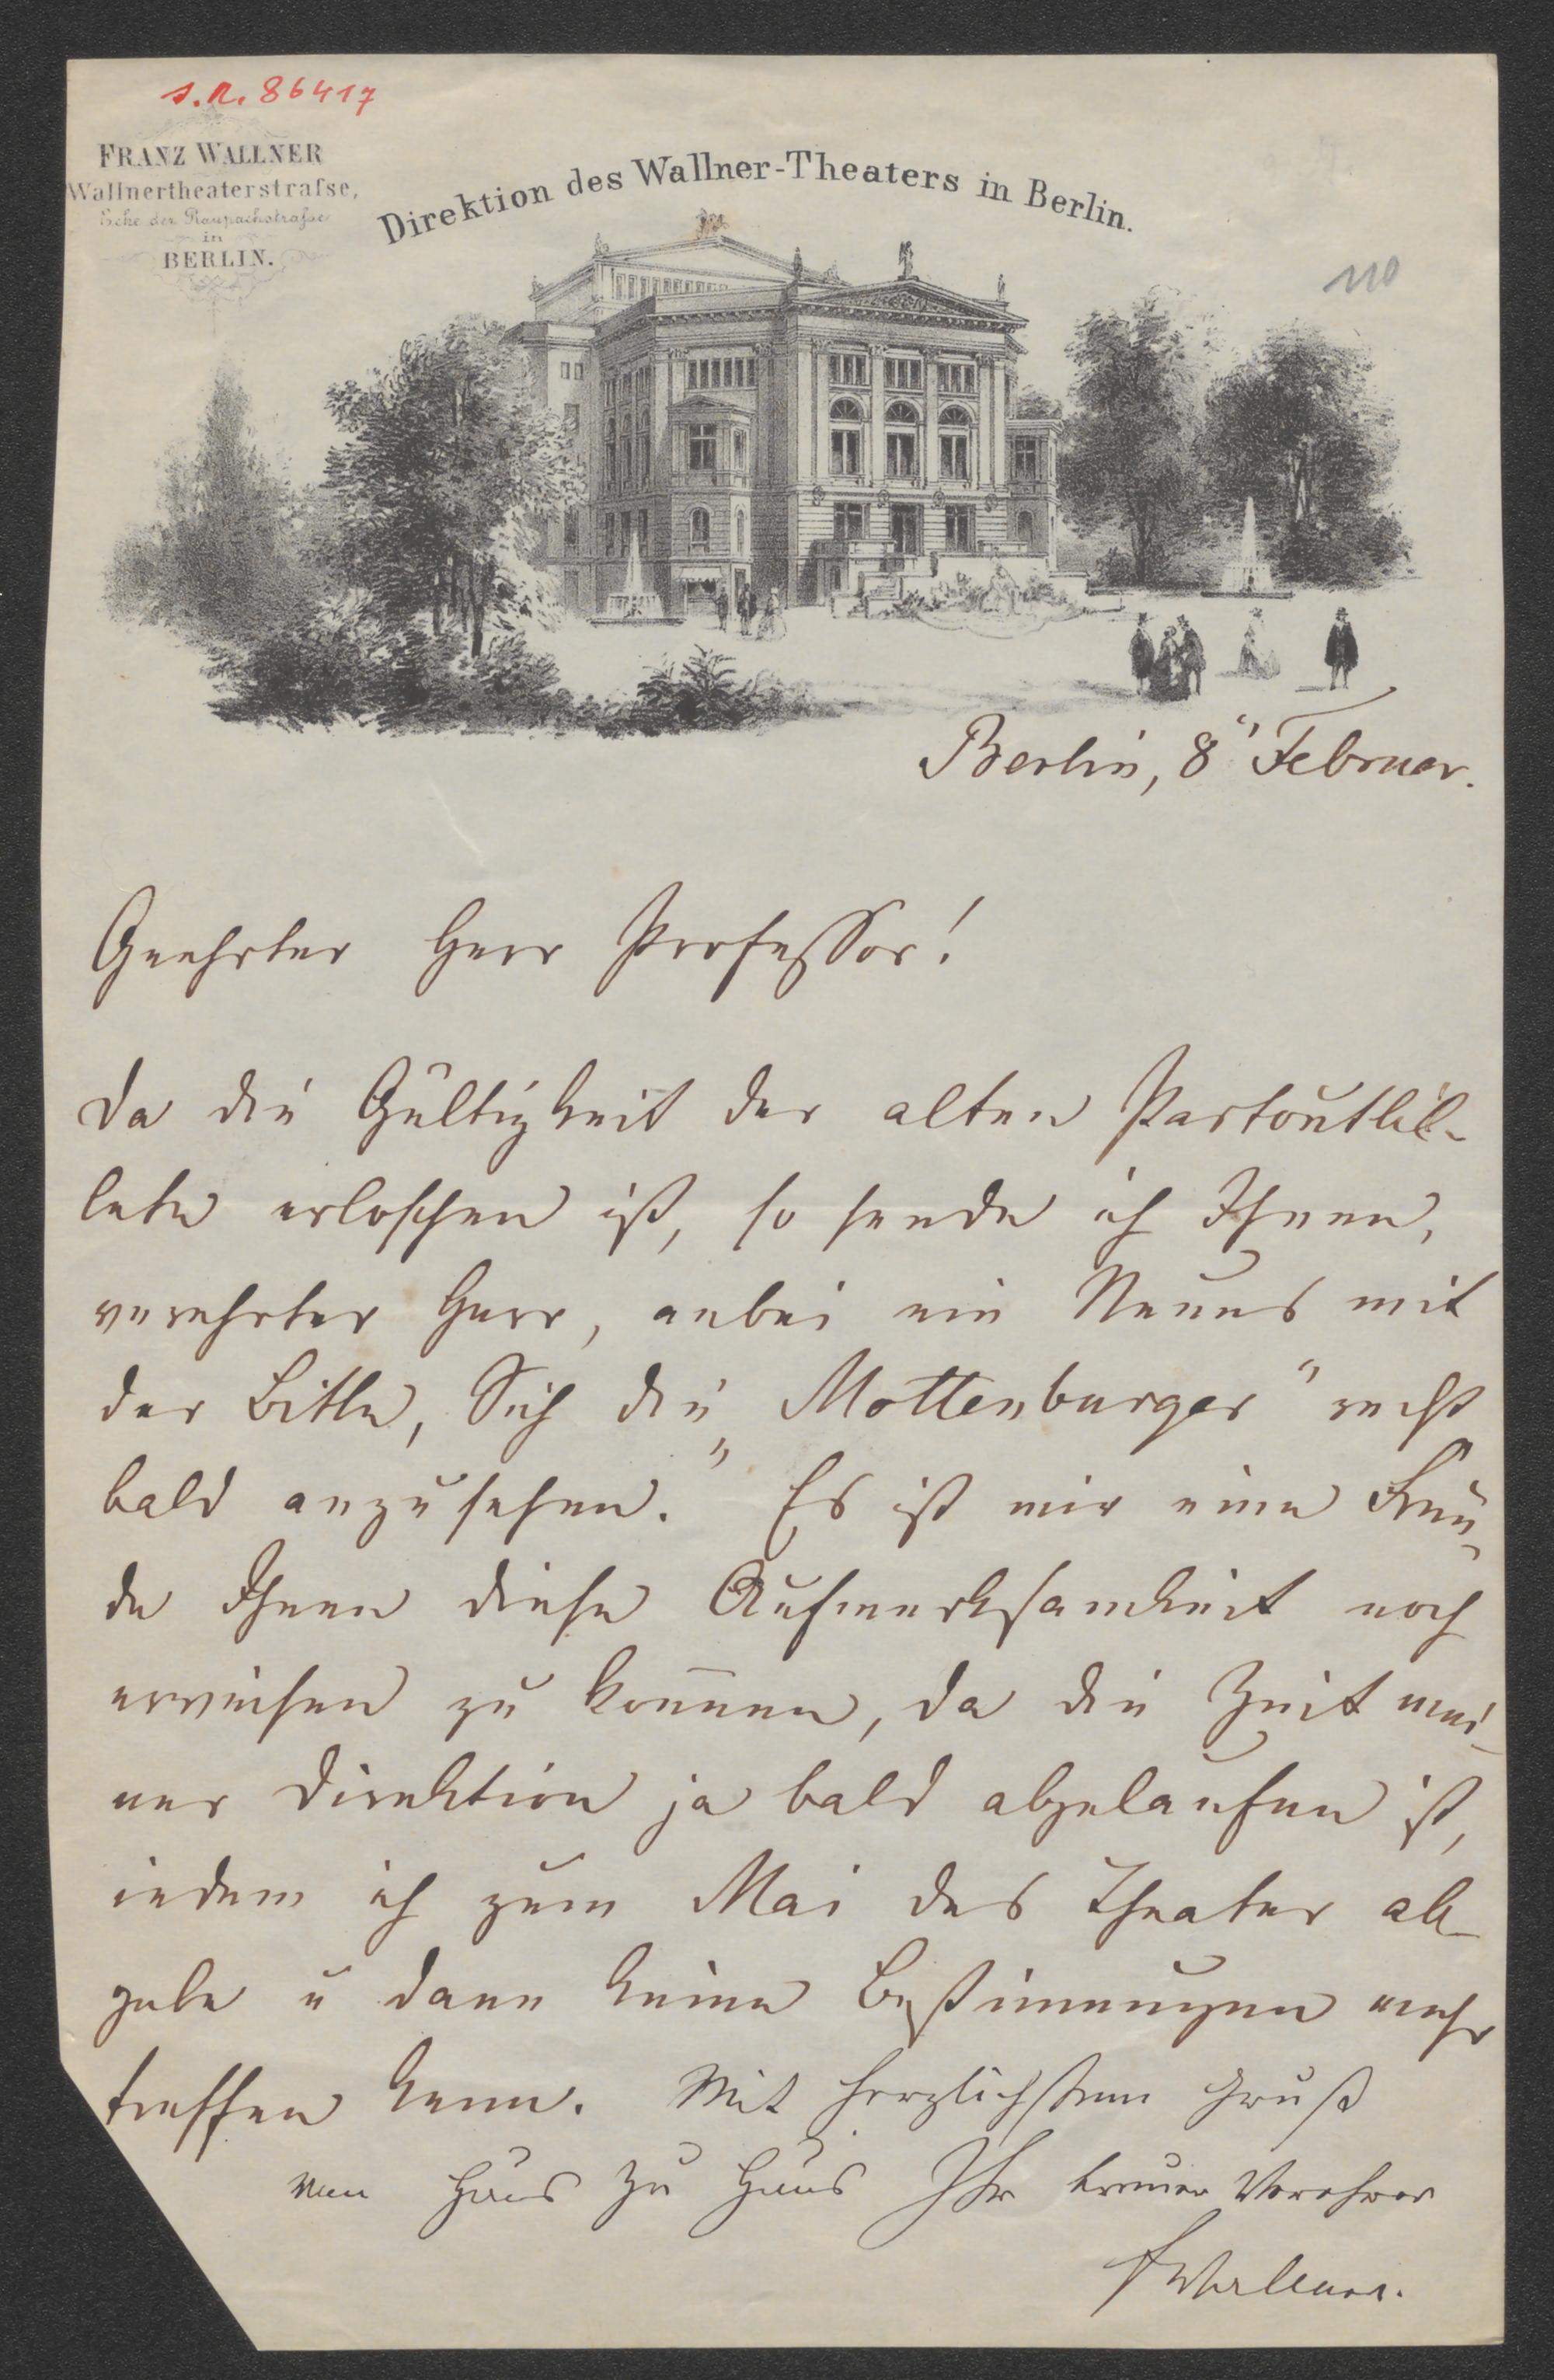 s. n. 86417
FRANZ WALLNER
Wallnertheaterstraſse,
Ecke der Raupachstraſse
in
BERLIN.
Direktion des Wallner-Theaters in Berlin.
110
Berlin, 8" Februar.
Geehrter Herr Professor!
Da die Gültigkeit der alten Partoutbil-
lete erloschen ist, so sende ich Ihnen,
verehrter Herr, anbei ein Neues mit
der Bitte, Sich die „Mottenburger" recht
bald anzusehen." Es ist mir eine Freu-
de Ihnen diese Aufmerksamkeit noch
erweisen zu können, da die Zeit mei-
ner Direktion ja bald abgelaufen ist,
indem ich zum Mai das Theater ab-
gebe u dann keine Bestimmungen mehr
treffen kann. Mit herzlichstem Gruß
von Haus zu Haus Ihr treuer Verehrer
FWallner.